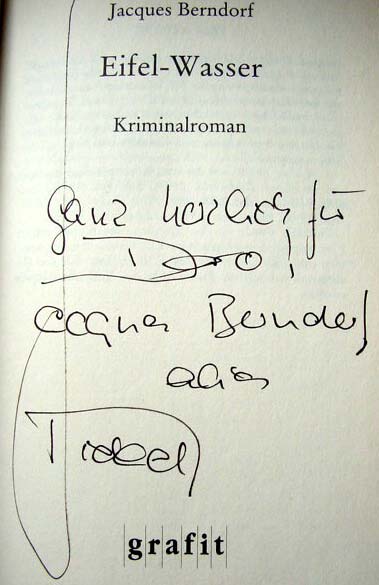 Jacques Berndorf
Eifel-Wasser
Kriminalroman
ganz herzlich für
Jacques Berndorf
alias
grafit